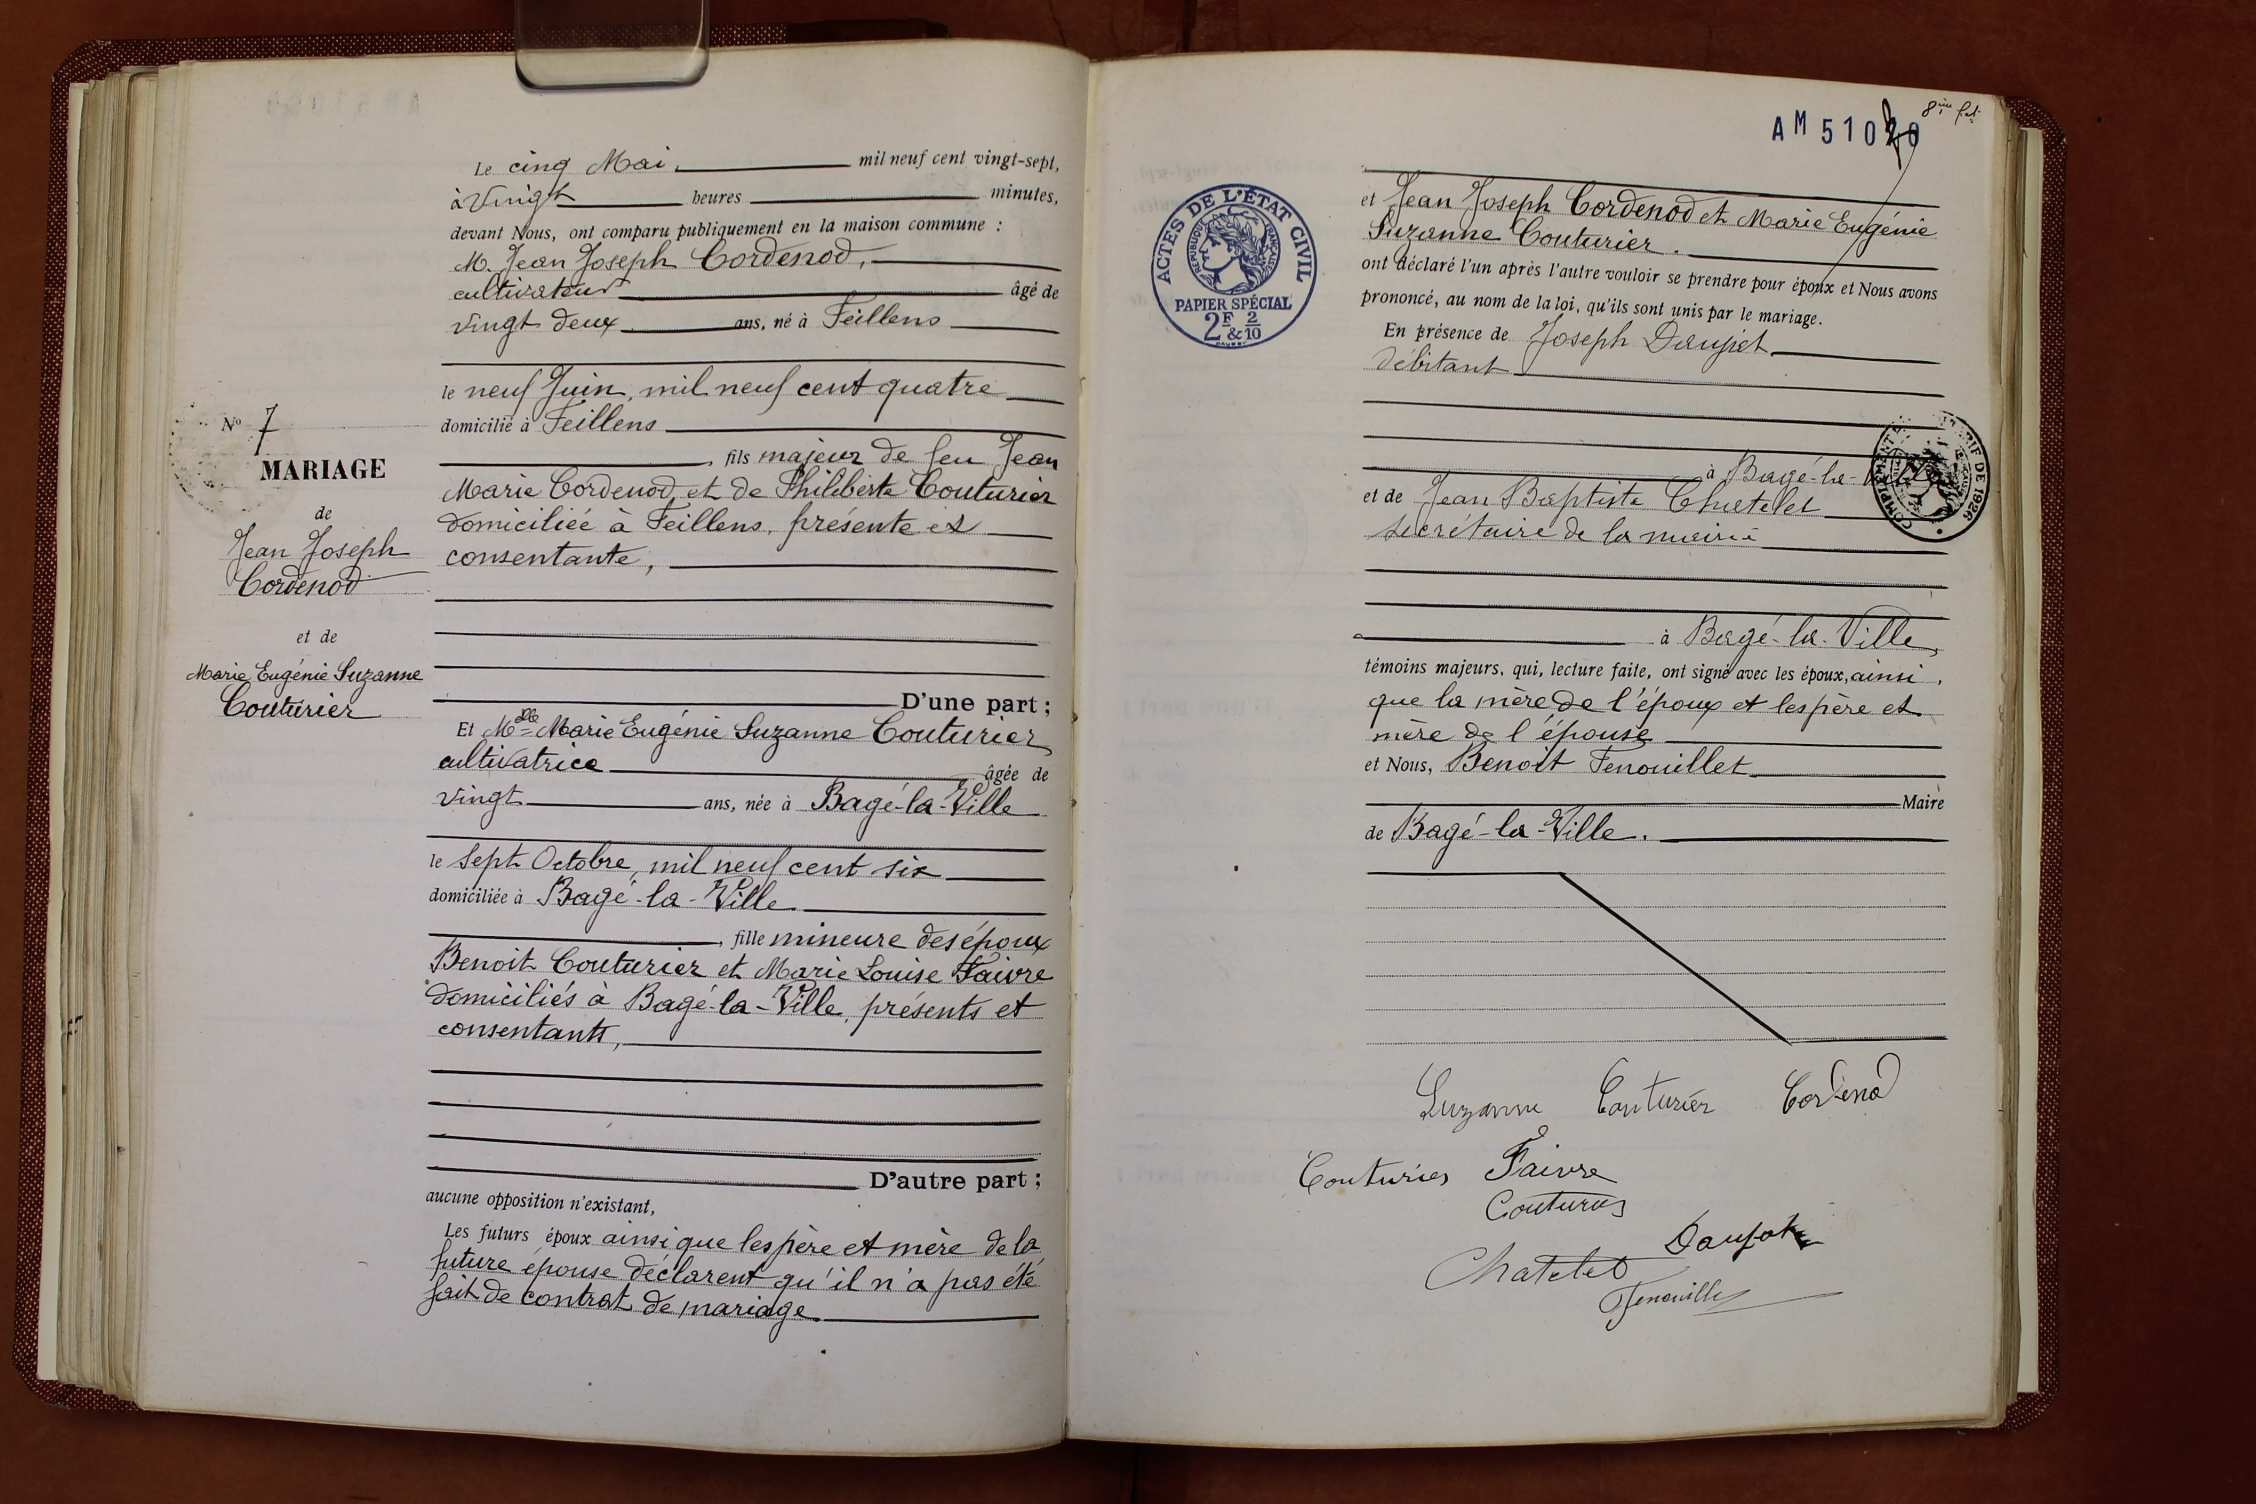 Le cinq Mai, mil neuf cent vingt-sept,
à Vingt heures minutes,
devant Nous, ont comparu publiquement en la maison commune :
M. Jean Joseph Cordenod,
cultivateur âgé de
vingt deux ans, né à Feillens
le neuf Juin, mil neuf cent quatre
domicilié à Feillens
, fils majeur de feu Jean
Marie Cordenod, et de Philiberte Couturier
domiciliée à Feillens, présente et
consentante,
D'une part ;
Nº 7
MARIAGE
de
Jean Joseph
Cordenod
et de
Marie Eugénie Suzanne
Couturier
Et Mlle Marie Eugénie Suzanne Couturier
cultivatrice âgée de
vingt ans, née à Bagé-la-Ville
le sept Octobre, mil neuf cent six
domiciliée à Bagé-la-Ville
, fille mineure des époux
Benoit Couturier et Marie Louise Faivre
domiciliés à Bagé-la-Ville, présents et
consentants,
D'autre part ;
aucune opposition n'existant,
Les futurs époux ainsi que les père et mère de la
future épouse déclarent qu'il n'a pas été
fait de contrat de mariage
AM 510
ACTES DE L'ÉTAT CIVIL
RÉPUBLIQUE FRANÇAISE
PAPIER SPÉCIAL
2F & 2/10
et Jean Joseph Cordenod et Marie Eugénie
Suzanne Couturier.
ont déclaré l'un après l'autre vouloir se prendre pour époux et Nous avons
prononcé, au nom de la loi, qu'ils sont unis par le mariage.
En présence de Joseph Daujat
débitant
à Bagé-la-Ville
COMPLEMENT TARIF DE 1926
et de Jean Baptiste Chatelet
secrétaire de la mairie
à Bagé-la-Ville,
témoins majeurs, qui, lecture faite, ont signé avec les époux, ainsi
que la mère de l'époux et les père et
mère de l'épouse
et Nous, Benoit Fenouillet
Maire
de Bagé-la-Ville.
Suzanne Couturier Cordenod
Couturier Faivre
Couturier
Daujat
Chatelet
Fenouillet